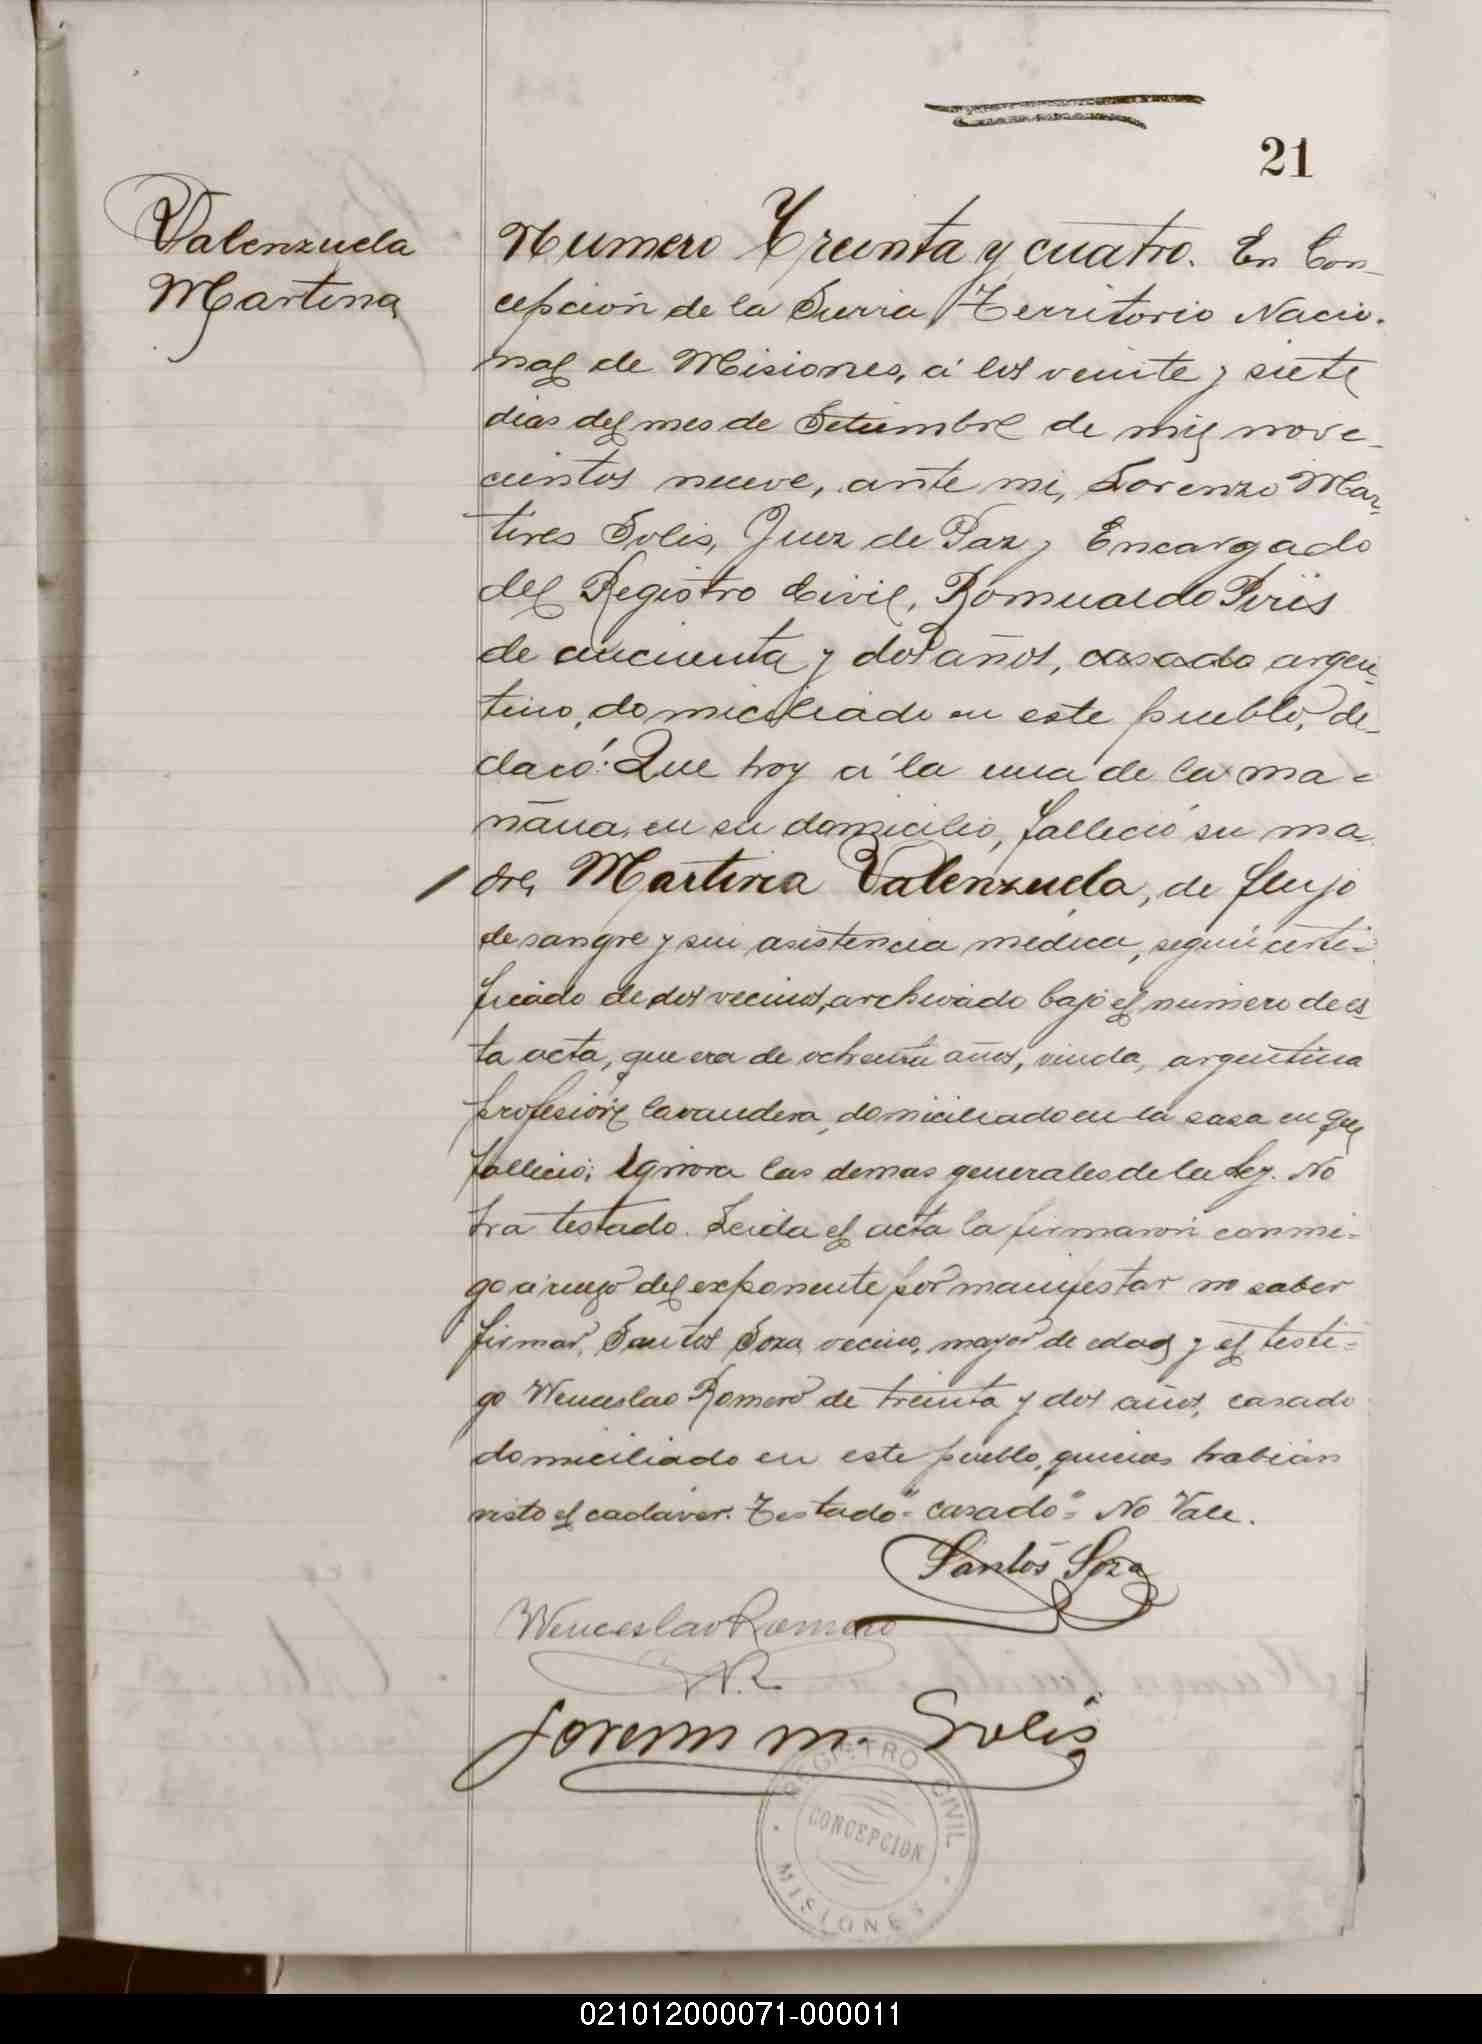 21
Valenzuela
Martina
Numero Treinta y cuatro. En Con-
cepción de la Sierra Territorio Nacio-
nal de Misiones, á los veinte y siete
dias del mes de Setiembre de mil nove-
cientos nueve, ante mi, Lorenzo Mar-
tires Solis, Juez de Paz y Encargado
del Registro Civil, Romualdo Piris
de cincuenta y dos años, casado argen-
tino, domiciliado en este pueblo, de-
claró: Que hoy á la una de la ma-
ñana, en su domicilio, falleció su ma
dre, Martina Valenzuela, de flujo
de sangre y sin asistencia médica, segun certi-
ficado de dos vecinos, archivado bajo el numero de es
ta acta, que era de ochenta años, viuda, argentina
profesión lavandera, domiciliado en la casa en que
falleció; Ignora las demas generales de la Ley. No
ha testado. Leida el acta la firmaron conmi-
go á ruego del exponente por manifestar no saber
firmar, Santos Soza, vecino, mayor de edad y el testi-
go Wenceslao Romero de treinta y dos años, casado
domiciliado en este pueblo, quienes habian
visto el cadáver. Testado "casado" No Vale.
Santos Soza
Wenceslao Romero
W.R.
Lorenzo M. Solis
REGISTRO CIVIL
CONCEPCION
MISIONES
021012000071-000011